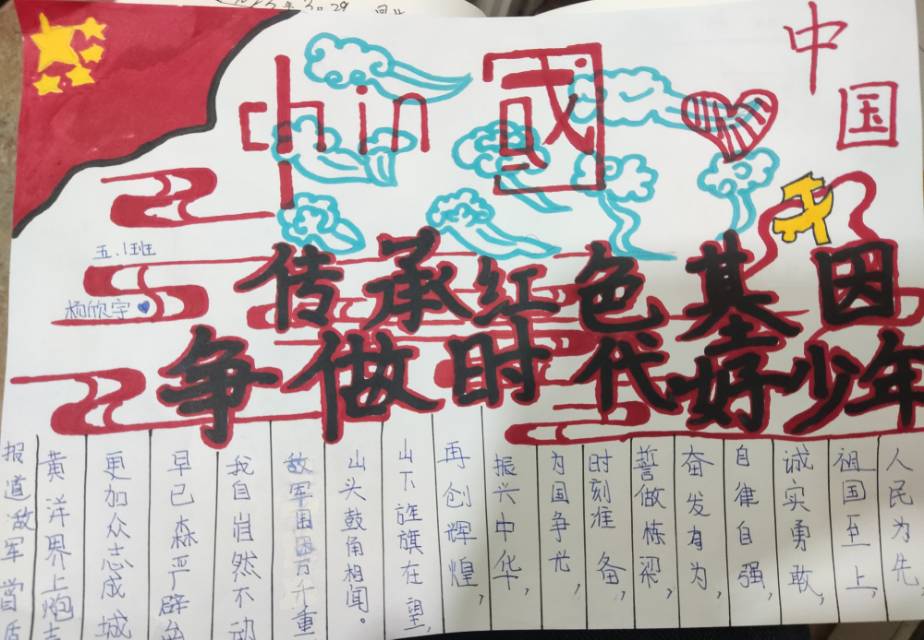 chin國
中国
五.1班
杨欣宇
传承红色基因
争做时代好少年
人民为先
祖国至上,
诚实勇敢,
自律自强,
奋发有为,
誓做栋梁,
时刻准备,
为国争光,
振兴中华,
再创辉煌,
山下旌旗在望,
山头鼓角相闻。
敌军围困万千重
我自岿然不动
早已森严
更加众志成城
黄洋界上炮
报道敌军